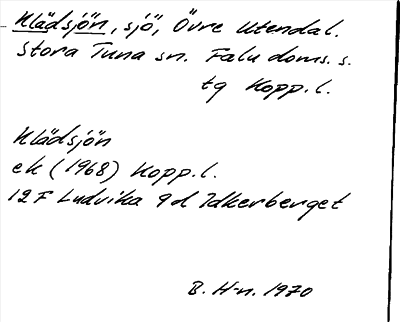 Klädsjön, sjö, Övre Utendal.
Stora Tuna sn. Falu doms. s.
tg Kopp. l.
Klädsjön
ek (1968) Kopp. l.
12 F Ludvika 9 d Idkerberget
B. H-n. 1970